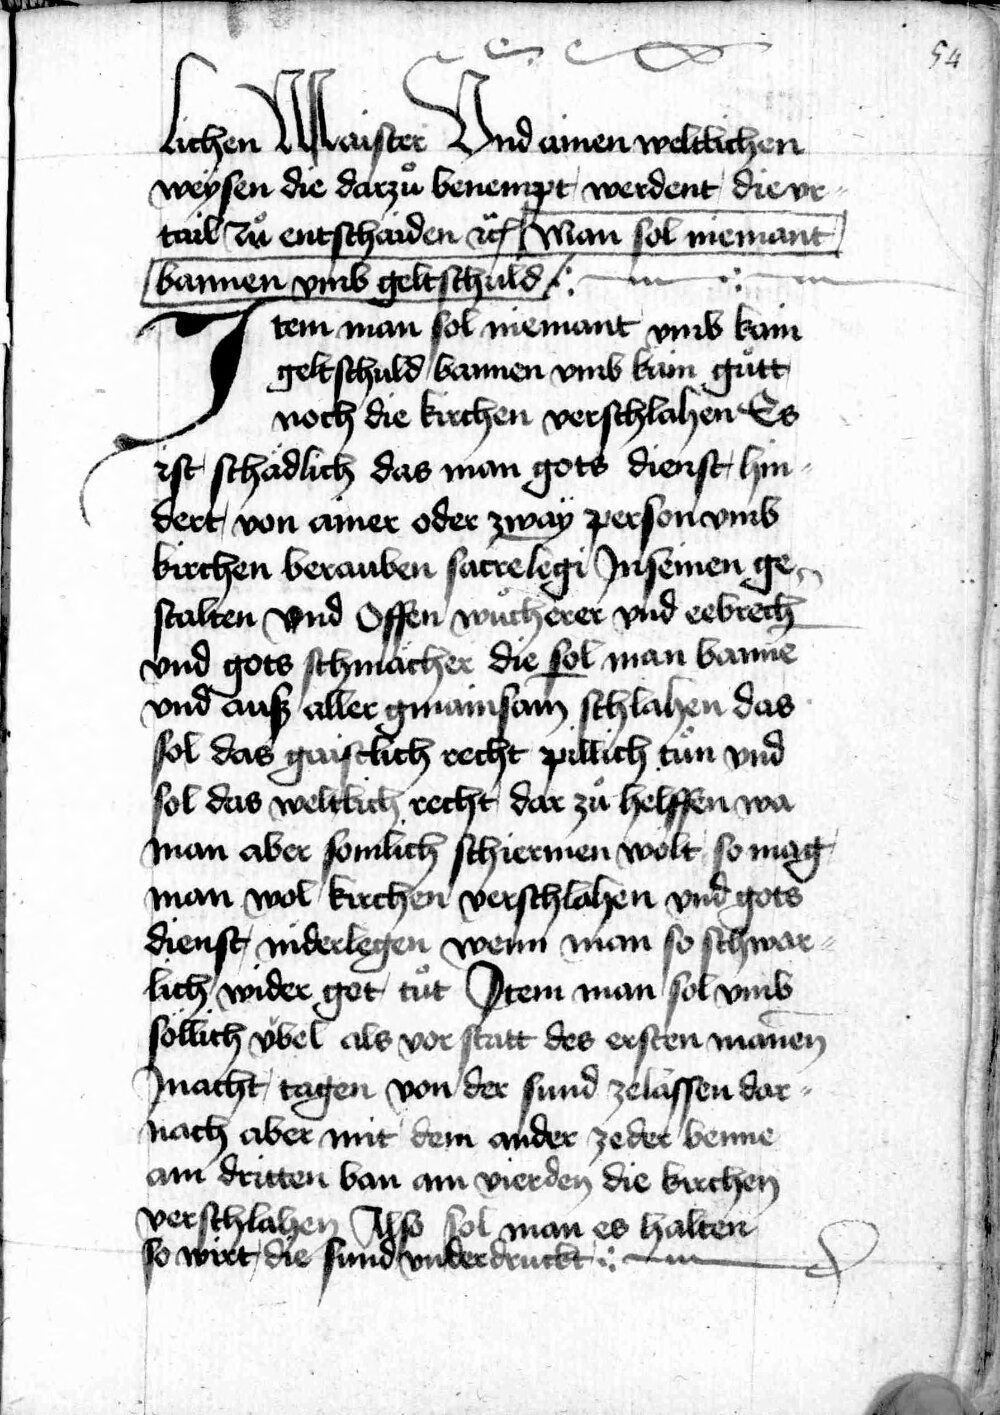 54
lichen Maister Und ainen weltlichen
weysen die darzuͦ benempt werdent die vr=
tail zuͦ entschaiden ꝛc̃ Man sol niemant
bannen vmb geltschuld
Item man sol niemant vmb kain
geltschuld bannen vmb kain guͦtt
noch die kirchen verschlahen Es
ist schädlich das man gots dienst hin=
dert von ainer oder zway person vmb
kirchen berauben sacrelegi In seinen ge=
stalten Vnd Offen wuͦcherer vnd eebrech
vnd gots schmächer die sol man bannē
vnd auß aller gmainsam̄ schlahen das
sol das gaistlich recht pillich tuͦn vnd
sol das weltlich recht dar zuͦ helffen wa
man aber somlich schiermen wolt so mag
man wol kirchen verschlahen vnd gots
dienst niderlegen wenn man so schwär=
lich wider got tuͦt Item man sol vmb
söllich v̈bel als vor statt des ersten manen̄
In acht tagen von der sund zelässen dar=
nach aber mit dem ander zeder benne
am dritten ban am vierden die kirchen
verschlahen Also sol man es halten
so wirt die sund vnderdruckt